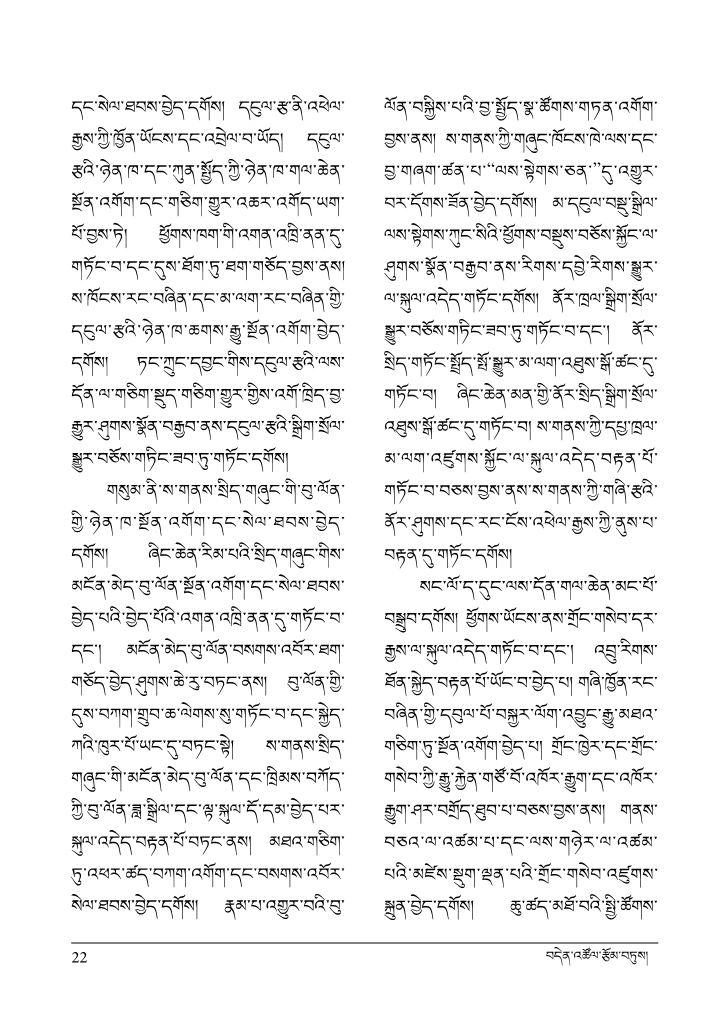 དང་སེལ་ཐབས་བྱེད་དགོས། དངུལ་རྩ་ནི་འཕེལ་
རྒྱས་ཀྱི་ཁྱོན་ཡོངས་དང་འབྲེལ་བ་ཡོད། དངུལ་
རྩའི་ཉེན་ཁ་དང་ཀུན་སྤྱོད་ཀྱི་ཉེན་ཁ་གལ་ཆེན་
སྔོན་འགོག་དང་གཅིག་གྱུར་འཆར་འགོད་ཡག་
པོ་བྱས་ཏེ། ཕྱོགས་ཁག་གི་འགན་འཁྲི་ནན་དུ་
གཏོང་བ་དང་དུས་ཐོག་ཏུ་ཐག་གཅོད་བྱས་ནས།
ས་ཁོངས་རང་བཞིན་དང་མ་ལག་རང་བཞིན་གྱི་
དངུལ་རྩའི་ཉེན་ཁ་ཆགས་རྒྱུ་སྔོན་འགོག་བྱེད་
དགོས། ཏང་ཀྲུང་དབྱང་གིས་དངུལ་རྩའི་ལས་
དོན་ལ་གཅིག་སྡུད་གཅིག་གྱུར་གྱིས་འགོ་ཁྲིད་བྱ་
རྒྱུར་ཤུགས་སྣོན་བརྒྱབ་ནས་དངུལ་རྩའི་སྒྲིག་སྲོལ་
སྒྱུར་བཅོས་གཏིང་ཟབ་ཏུ་གཏོང་དགོས།
གསུམ་ནི་ས་གནས་སྲིད་གཞུང་གི་བུ་ལོན་
གྱི་ཉེན་ཁ་སྔོན་འགོག་དང་སེལ་ཐབས་བྱེད་
དགོས། ཞིང་ཆེན་རིམ་པའི་སྲིད་གཞུང་གིས་
མངོན་མེད་བུ་ལོན་སྔོན་འགོག་དང་སེལ་ཐབས་
བྱེད་པའི་བྱེད་པོའི་འགན་འཁྲི་ནན་དུ་གཏོང་བ་
དང་། མངོན་མེད་བུ་ལོན་བསགས་འབོར་ཐག་
གཅོད་བྱེད་ཤུགས་ཆེ་རུ་བཏང་ནས། བུ་ལོན་གྱི་
དུས་བཀག་གྲུབ་ཆ་ལེགས་སུ་གཏོང་བ་དང་སྐྱེད་
ཀའི་ཁུར་པོ་ཡང་དུ་བཏང་སྟེ། ས་གནས་སྲིད་
གཞུང་གི་མངོན་མེད་བུ་ལོན་དང་ཁྲིམས་བཀོད་
ཀྱི་བུ་ལོན་ཟླ་སྒྲིལ་དང་ལྟ་སྐུལ་དོ་དམ་བྱེད་པར་
སྐུལ་འདེད་བརྟན་པོ་བཏང་ནས། མཐའ་གཅིག་
ཏུ་འཕར་ཚད་བཀག་འགོག་དང་བསགས་འབོར་
སེལ་ཐབས་བྱེད་དགོས། རྣམ་པ་འགྱུར་བའི་བུ་
ལོན་བསྐྱིས་པའི་བྱ་སྤྱོད་སྣ་ཚོགས་གཏན་འགོག་
བྱས་ནས། ས་གནས་ཀྱི་གཞུང་ཁོངས་ཁེ་ལས་དང་
བྱ་གཞག་ཚན་པ་“ལས་སྟེགས་ཅན་”དུ་འགྱུར་
བར་དོགས་ཟོན་བྱེད་དགོས། མ་དངུལ་བསྡུ་སྒྲིལ་
ལས་སྟེགས་ཀུང་སིའི་ཕྱོགས་བསྡུས་བཅོས་སྐྱོང་ལ་
ཤུགས་སྣོན་བརྒྱབ་ནས་རིགས་དབྱེ་རིགས་སྒྱུར་
ལ་སྐུལ་འདེད་གཏོང་དགོས། ནོར་ཁྲལ་སྒྲིག་སྲོལ་
སྒྱུར་བཅོས་གཏིང་ཟབ་ཏུ་གཏོང་བ་དང་། ནོར་
སྲིད་གཏོང་སྤྲོད་སྤོ་སྒྱུར་མ་ལག་འཐུས་སྒོ་ཚང་དུ་
གཏོང་བ། ཞིང་ཆེན་མན་གྱི་ནོར་སྲིད་སྒྲིག་སྲོལ་
འཐུས་སྒོ་ཚང་དུ་གཏོང་བ། ས་གནས་ཀྱི་དཔྱ་ཁྲལ་
མ་ལག་འཛུགས་སྐྱོང་ལ་སྐུལ་འདེད་བརྟན་པོ་
གཏོང་བ་བཅས་བྱས་ནས་ས་གནས་ཀྱི་གཞི་རྩའི་
ནོར་ཤུགས་དང་རང་ངོས་འཕེལ་རྒྱས་ཀྱི་ནུས་པ་
བརྟན་དུ་གཏོང་དགོས།
སང་ལོ་ད་དུང་ལས་དོན་གལ་ཆེན་མང་པོ་
བསྒྲུབ་དགོས། ཕྱོགས་ཡོངས་ནས་གྲོང་གསེབ་དར་
རྒྱས་ལ་སྐུལ་འདེད་གཏོང་བ་དང་། འབྲུ་རིགས་
ཐོན་སྐྱེད་བརྟན་པོ་ཡོང་བ་བྱེད་པ། གཞི་ཁྱོན་རང་
བཞིན་གྱི་དབུལ་པོ་བསྐྱར་ལོག་འབྱུང་རྒྱུ་མཐའ་
གཅིག་ཏུ་སྔོན་འགོག་བྱེད་པ། གྲོང་ཁྱེར་དང་གྲོང་
གསེབ་ཀྱི་རྒྱུ་རྐྱེན་གཙོ་བོ་འཁོར་རྒྱུག་དང་འཁོར་
རྒྱུག་ཤར་བགྲོད་ཐུབ་པ་བཅས་བྱས་ནས། གནས་
བཅའ་ལ་འཚམ་པ་དང་ལས་གཉེར་ལ་འཚམ་
པའི་མཛེས་སྡུག་ལྡན་པའི་གྲོང་གསེབ་འཛུགས་
སྐྲུན་བྱེད་དགོས། ཆུ་ཚད་མཐོ་བའི་སྤྱི་ཚོགས་
22
བདེན་འཚོལ་རྩོམ་བཏུས།